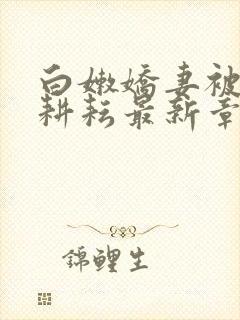 白嫩嬌妻被
耕耘最新章
錦鯉生